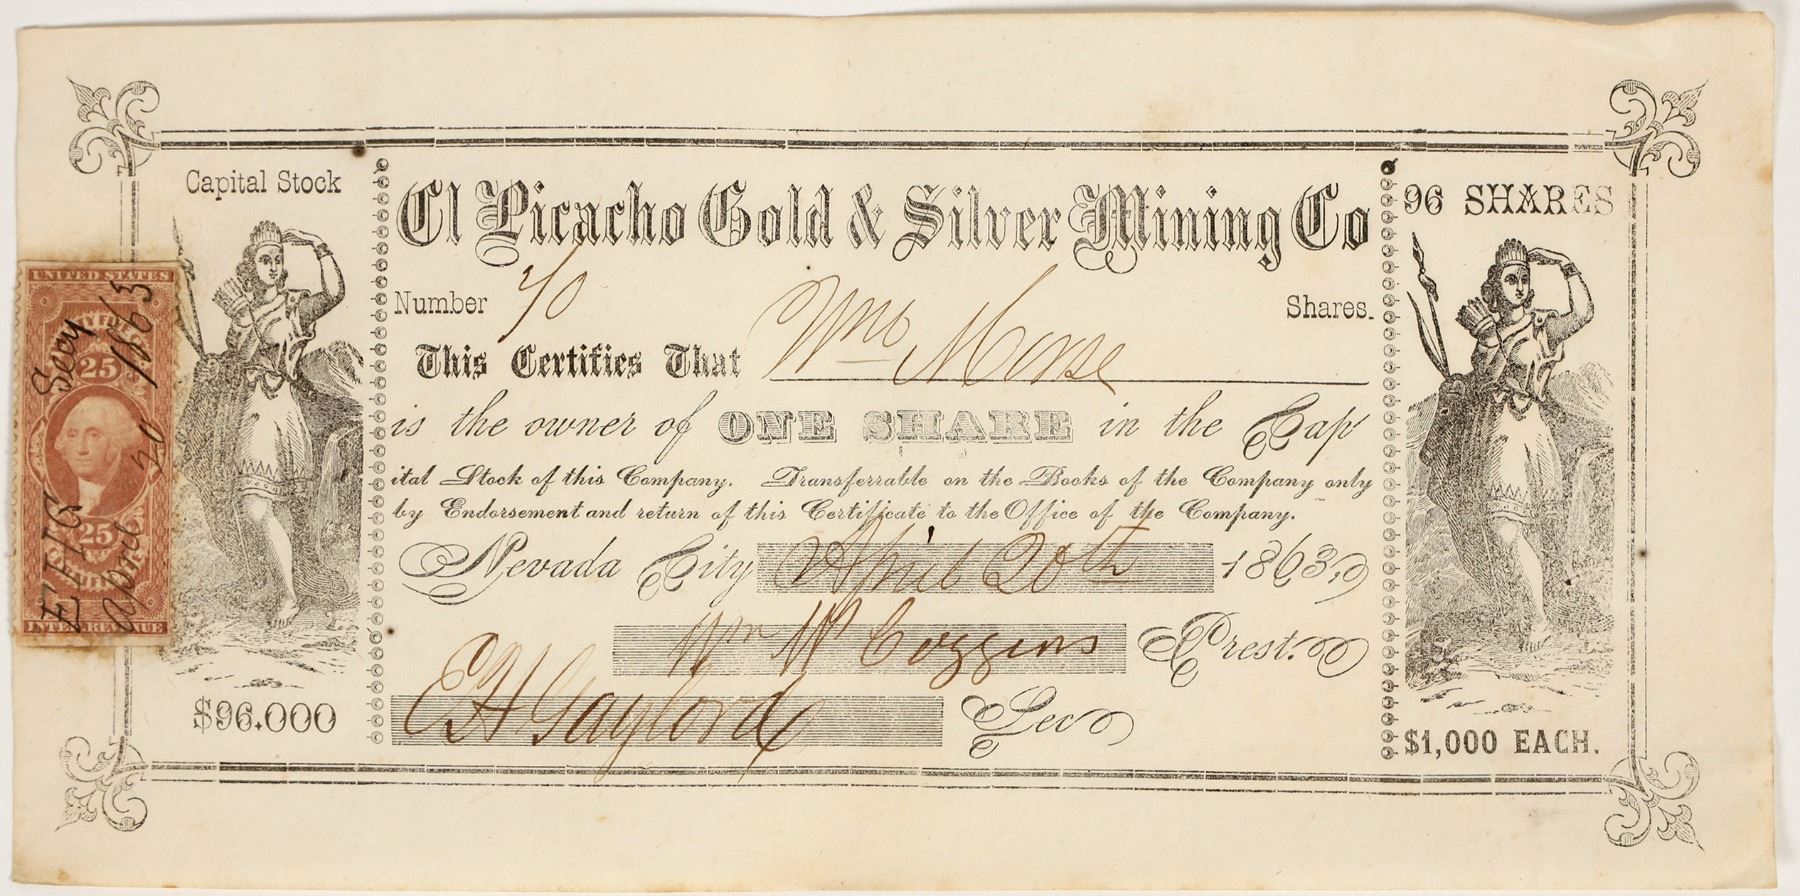 Capital Stock
El Picacho Gold & Silver Mining Co
96 SHARES
Number 40 Shares.
This Certifies That Wm Morse
is the owner of ONE SHARE in the Cap
ital Stock of this Company. Transferrable on the Books of the Company only
by Endorsement and return of this Certificate to the Office of the Company.
Nevada City April 20th 1863.
Wm W Coggins Prest.
E H Gaylord Sec
$96.000
$1,000 EACH.
UNITED STATES
25
25
INTER. REVENUE
E H G Secy
April 20 1863